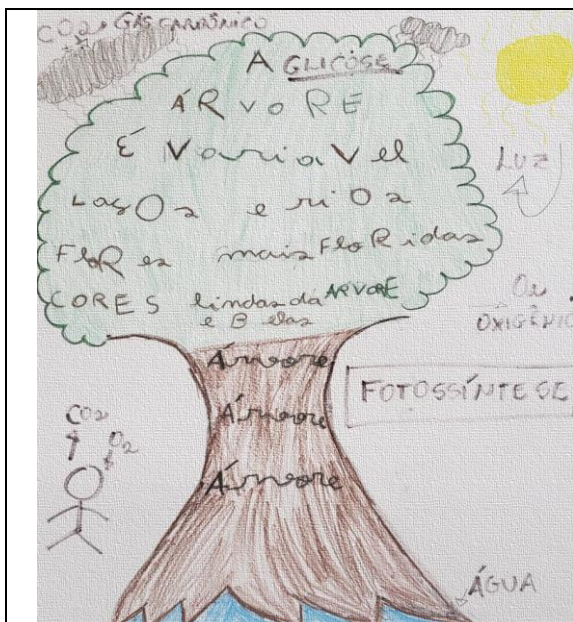 CO2 → GÁS CARBÔNICO
A GLICOSE
ÁRVORE
É VariaVel
LagOs e riOs
FloRes mais FloRidas
CORES lindas da ARVORE
e Belas
LUZ
O2
OXIGÊNIO
Árvore
Árvore
Árvore
FOTOSSÍNTESE
CO2
O2
ÁGUA